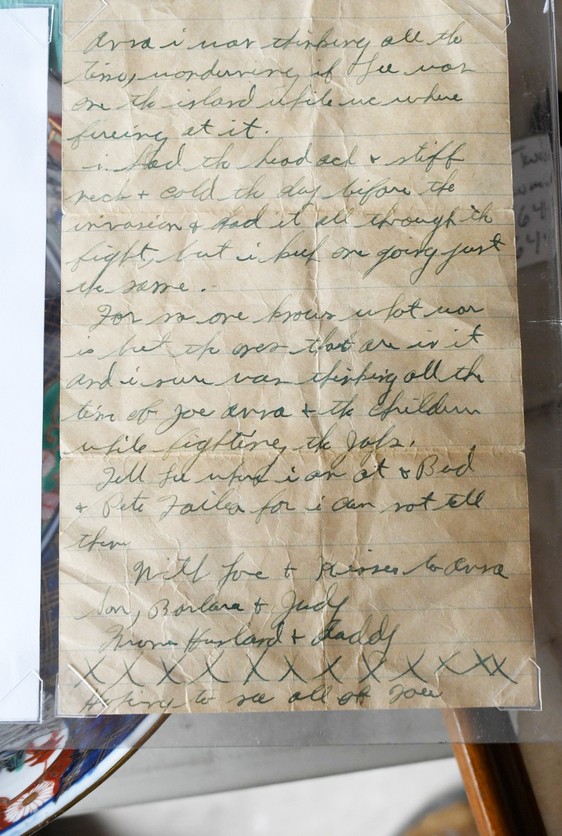 Anna i was thinking all the
time, wondurring if Lee was
one th island while we where
fireing at it.
i had th head ach + stiff
neck + cold th day bifore the
invasion & had it all through th
fight, but i kep one going just
the same.
For no one knows what war
is but th ones that are in it
and i sure was thinking all the
time of Joe Anna + th children
while fighting th Japs.
Tell Lee where i am at & Bud
& Pete Failer for i can not tell
them
With Love + Kisses to Anna
Jon, Barbara & Judy
From Husband & Daddy
X X X X X X X X X X X X
Hoping to see all of Joee
64
64